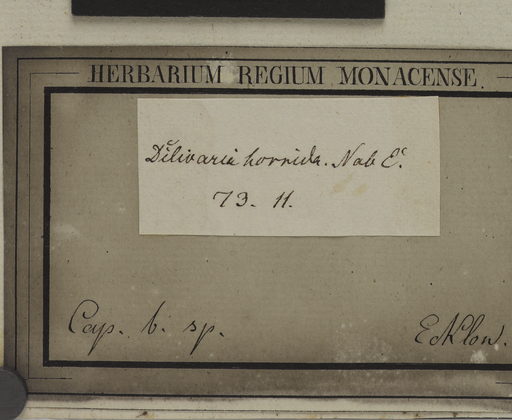 HERBARIUM REGIUM MONACENSE.
Dilivaria horrida. Nab E.
73. 11.
Cap. b. sp.
Ecklon.